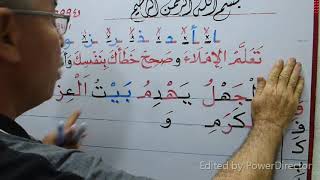 بسم الله الرحمن الرحيم
ا أ د ذ ر ز و
تَعَلَّمِ الإِمْلَاءَ وَصَحِّحْ خَطَأَكَ بِنَفْسِكَ
الْجَهْلُ يَهْدِمُ بَيْتَ الْعِزِّ
وَ
Edited by PowerDirector